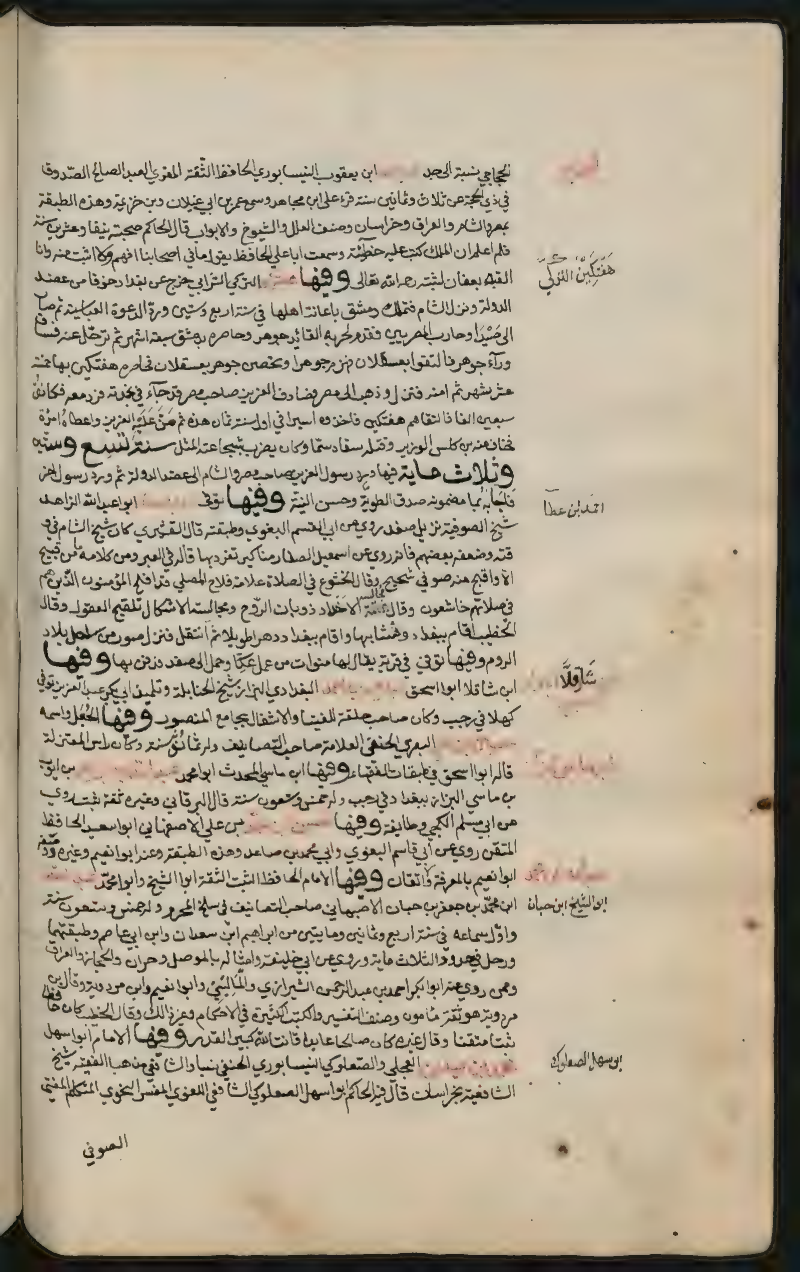 الحجاجي نسبة الى جد ابن يعقوب النيسابوري الحافظ الثقة المقري العبد الصالح الصدوق
في ذي الحجة عن ثلاث وثمانين سنة قرء على ابن مجاهد وسمع عمر بن ابي غيلان وبن خزيمة وهذه الطبقة
بمصر والشام والعراق وخراسان وصنف العلل والشيوخ والابواب قال الحاكم صحبته نيفا وعشرين سنة
فلم اعلم ان الملك كتب عليه خطئة وسمعت ابا علي الحافظ يقول ما في اصحابنا افهم ولا اثبت منه وانا
القبه بعفان لثبته رحمه الله تعالى وفيها التركي الشرابي خرج عن بغداد خوفا من عضد
هفتكين التركي
الدولة ونزل الشام فتملك دمشق باعانة اهلها في سنة اربع وستين ورد الدعوة العباسية ثم صار
الى صيدا وحارب المصريين فقدم لحربه القائد جوهر وحاصره بدمشق سبعة اشهر ثم ترحل عنه فساق
وراء جوهر فالتقوا بعسقلان فهزم جوهرا وتحصن جوهر بعسقلان فحاصره هفتكين بها خمسة
عشر شهر ثم امنه فنزل وذهب الى مصر فصادف العزيز صاحب مصر قد جاء في نجدته فرد معه فكانوا
سبعين الفا فالتقاهم هفتكين فاخذوه اسيرا في اول سنة ثمان هذه ثم من عليه العزيز واعطاه امرة
فخاف منه بن كلس الوزير وقتله سقاه سما وكان يضرب بشجاعته المثل سنة تسع وستين
وثلاث ماية فيها ورد رسول العزيز صاحب مصر والشام الى عضد الدولة ثم ورد رسول اخر
فاجابه بما مضمونه صدق الطوية وحسن النية وفيها توفي ابو عبد الله الزاهد
احمد بن عطا
شيخ الصوفية نزيل صفد روى عن ابي القسم البغوي وطبقته قال القشيري كان شيخ الشام في
قته وضعفه بعضهم فانه روى عن اسمعيل الصفار مناكير تفرد بها قاله في العبر ومن كلامه من قبيح
الا واقبح منه صوفي شحيح وقال الخشوع في الصلاة علامة فلاح المصلي قد افلح المؤمنون الذين هم
في صلاتهم خاشعون وقال مجالسة الاضداد ذوبان الروح ومجالسة الاشكال تلقيح العقول وقال
الخطيب اقام ببغداد ونشا بها واقام ببغداد دهرا طويلا ثم انتقل فنزل صور من ساحل بلاد
الروم وفيها توفي في قرية يقال لها منوات من عمل عكا وحمل الى صفد فدفن بها وفيها
ابن شاقلا ابو اسحق البغدادي البزاز شيخ الحنابلة وتلميذ ابي بكر عبد العزيز توفي
شاقلا
كهلا في رجب وكان صاحب حلقة الفتيا والاشغال بجامع المنصور وفيها الجعل واسمه
البصري الحنفي العلامة صاحب التصانيف وله ثمانون سنة وكان راس المعتزلة
قاله ابو اسحق في طبقات الفقهاء وفيها ابن ماسي المحدث ابو محمد بن ايوب
بن ماسي البزاز ببغداد في رجب وله خمس وتسعون سنة قال البرقاني وغيره ثقة ثبت روى
عن ابي مسلم الكجي وطايفة وفيها بن علي الاصفهاني ابو سعيد الحافظ
المتقن روى عن ابي قاسم البغوي وابي محمد بن صاعد وهذه الطبقة وعنه ابو نعيم وغيره ووصفه
ابو نعيم بالمعرفة والاتقان وفيها الامام الحافظ الثبت الثقة ابو الشيخ وابو محمد
ابو الشيخ ابن حبان
ابن محمد بن جعفر بن حبان الاصبهاني صاحب التصانيف في سلخ المحرم وله خمس وتسعون سنة
واول سماعه في سنة اربع وثمانين ومايتين من ابراهيم ابن سعدان وابن ابي عاصم وطبقتهما
ورحل في حدود الثلاث ماية وروى عن ابي خليفة وامثاله بالموصل وحران والحجاز والعراق
وممن روى عنه ابو بكر احمد بن عبد الرحمن الشيرازي والماليني وابو نعيم وابن مردوية وقال بن
مردويه هو ثقة مامون وصنف التفسير والكتب الكثيرة في الاحكام وغير ذلك وقال الخطيب كان حافظا
ثبتا متقنا وقال غيره كان صالحا عابدا قانتا لله كبير القدر وفيها الامام ابو سهل
العجلي والصعلوكي النيسابوري الحنفي نسبا والشافعي مذهبا الفقيه شيخ
ابو سهل الصعلوكي
الشافعية بخراسان قال فيه الحاكم ابو سهل الصعلوكي الشافعي اللغوي المفسر النحوي المتكلم المفتي
الصوفي